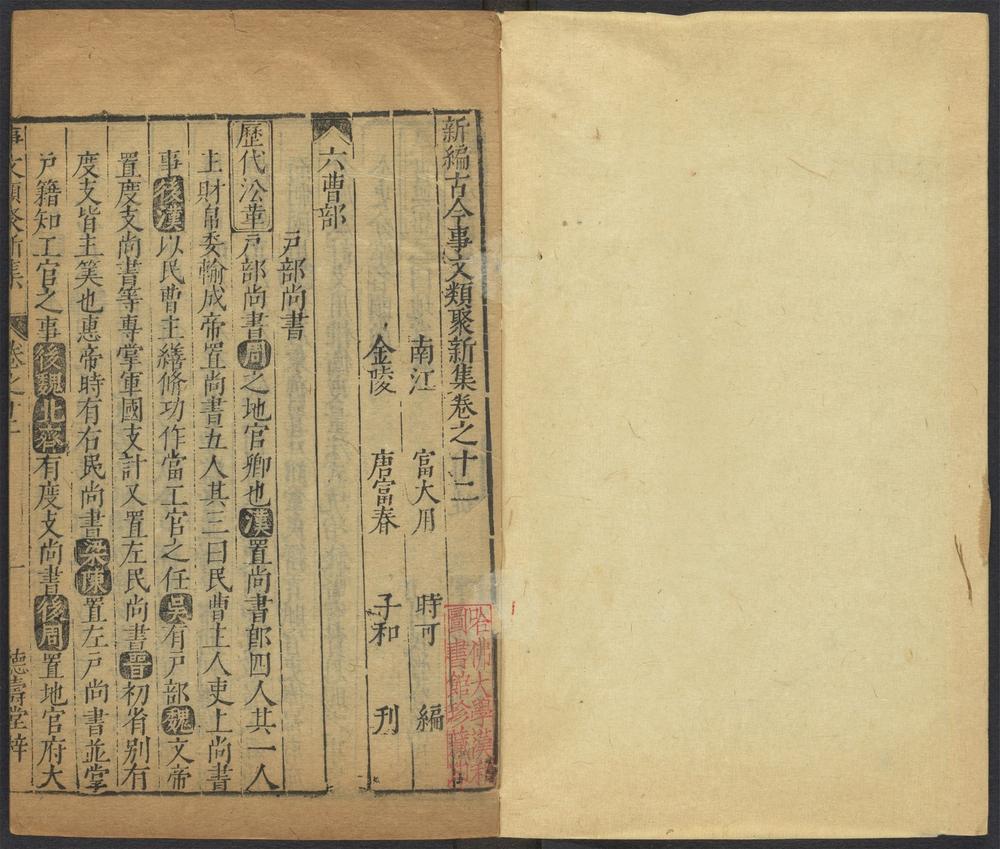 新編古今事文類聚新集卷之十二
南江 富大用 時可 編
金陵 唐富春 子和 刊
六曹部
戶部尚書
歷代沿革戶部尚書周之地官卿也漢置尚書郎四人其一人
主財帛委輸成帝置尚書五人其三曰民曹主人吏上尚書
事後漢以民曹主繕修功作當工官之任吳有戶部魏文帝
置度支尚書等專掌軍國支計又置左民尚書晉初省別有
度支皆主筭也惠帝時有右民尚書梁陳置左戶尚書並掌
戶籍知工官之事後魏北齊有度支尚書後周置地官府大
事文類聚新集 卷之十二 一 德壽堂梓
哈佛大學漢和
圖書館珍藏印